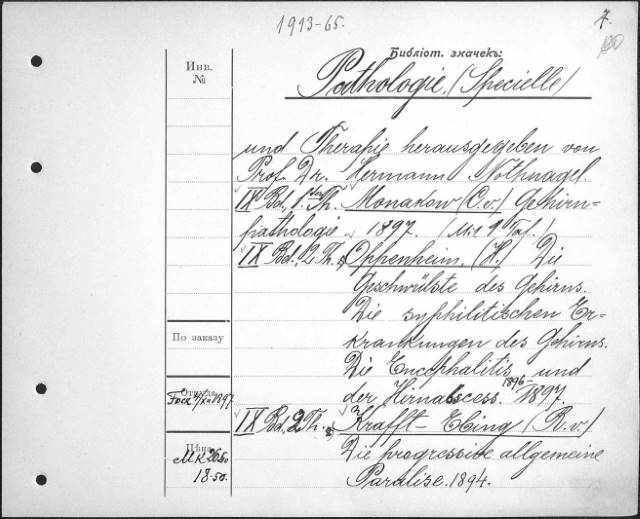 1913-65.
7.
Библіот. значекъ:
Инв.
№
Pathologie, (Specielle)
und Therapie herausgegeben von
Prof. Dr. Hermann Nothnagel.
IX Bd., 1. Th. Monakow (C. v.) Gehirn-
pathologie. 1897. (Mit 1 Taf.)
IX Bd., 2 Th. Oppenheim, (H.) Die
Geschwülste des Gehirns.
Die syphilitischen Er-
По заказу
krankungen des Gehirns.
Die Encephalitis und
der Hirnabscess. 1896-1897.
1897
IX Bd., 2 Th. Krafft-Ebing (R. v.)
Цѣна
Die progressive allgemeine
МК 26.50
18-50.
Paralise. 1894.